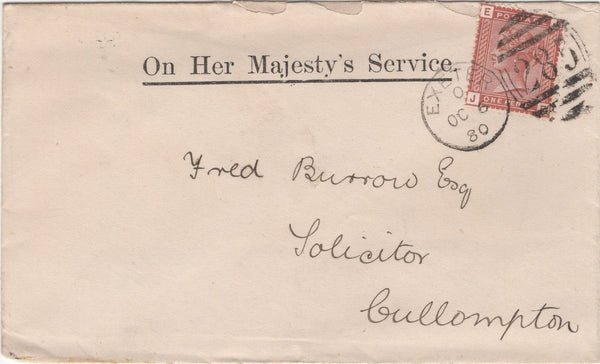 On Her Majesty's Service.
E POSTAGE
J ONE PENNY
EXETER
OC 6
80
285
Fred Burrow Esq
Solicitor
Cullompton